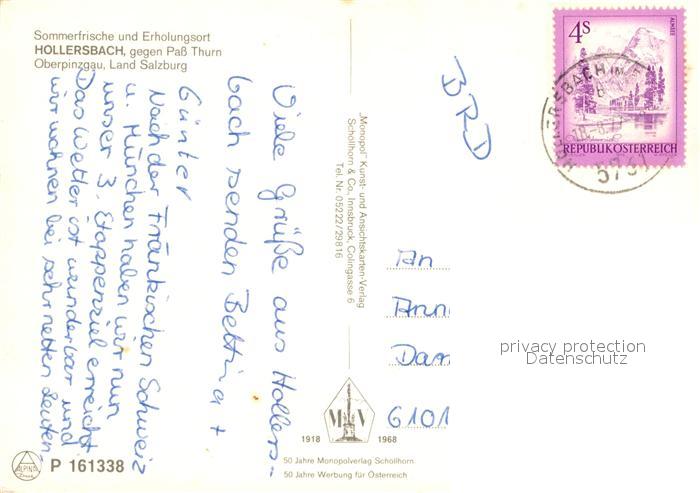 Sommerfrische und Erholungsort
HOLLERSBACH, gegen Paß Thurn
Oberpinzgau, Land Salzburg
Viele Grüße aus Hollers-
bach senden Bettina +
Günter
Nach der Fränkischen Schweiz
u. München haben wir nun
unser 3. Etappenziel erreicht
Das Wetter ist wunderbar und
wir wohnen bei sehr netten Leuten
"Monopol" Kunst- und Ansichtskarten-Verlag
Schöllhorn & Co., Innsbruck, Colingasse 6
Tel. Nr. 05222/29816
BRD
4S
ALMSEE
REPUBLIK ÖSTERREICH
5731
An
Ann
Dar
6101
privacy protection
Datenschutz
M V
1918 1968
50 Jahre Monopolverlag Schöllhorn
50 Jahre Werbung für Österreich
ALPINA
Druck
P 161338